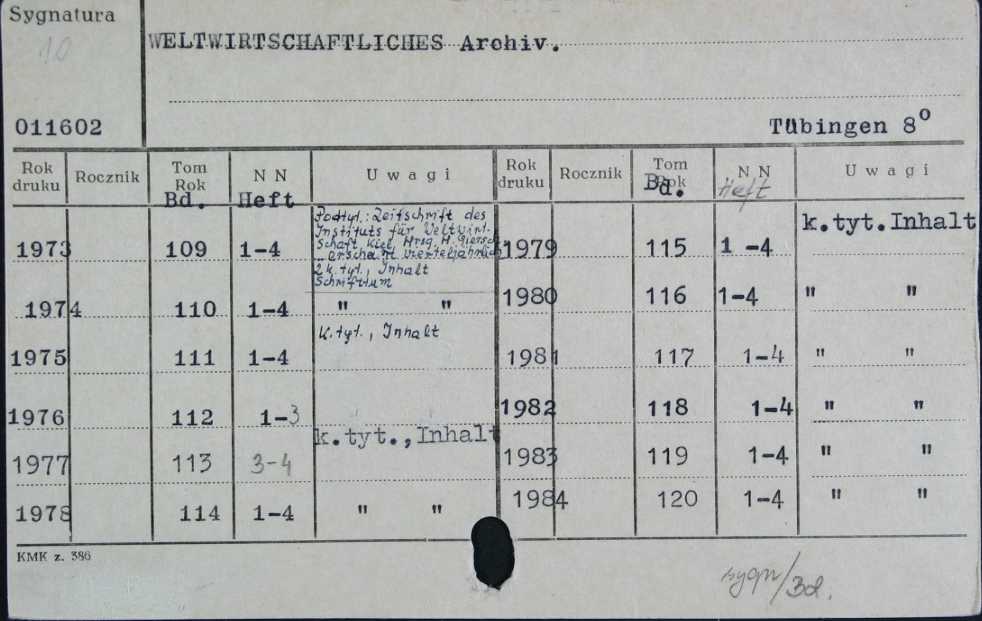 Sygnatura
10
WELTWIRTSCHAFTLICHES Archiv.
011602
Tübingen 8°
Rok druku Rocznik Tom Rok N N Uwagi
Bd. Heft
1973 109 1-4 Podtyt.: Zeitschrift des
Instituts für Weltwirt-
schaft Kiel. Hrsg. H. Giersch.
erscheint vierteljährlich
2 k.tyt., Inhalt
Schrifttum
1974 110 1-4 " "
1975 111 1-4 K.tyt., Inhalt
1976 112 1-3
1977 113 3-4 k.tyt., Inhalt
1978 114 1-4 " "
Rok druku Rocznik Tom Rok N N Uwagi
Bd. Heft
1979 115 1-4 k.tyt. Inhalt
1980 116 1-4 " "
1981 117 1-4 " "
1982 118 1-4 " "
1983 119 1-4 " "
1984 120 1-4 " "
KMK z. 386
sygn/Bd.